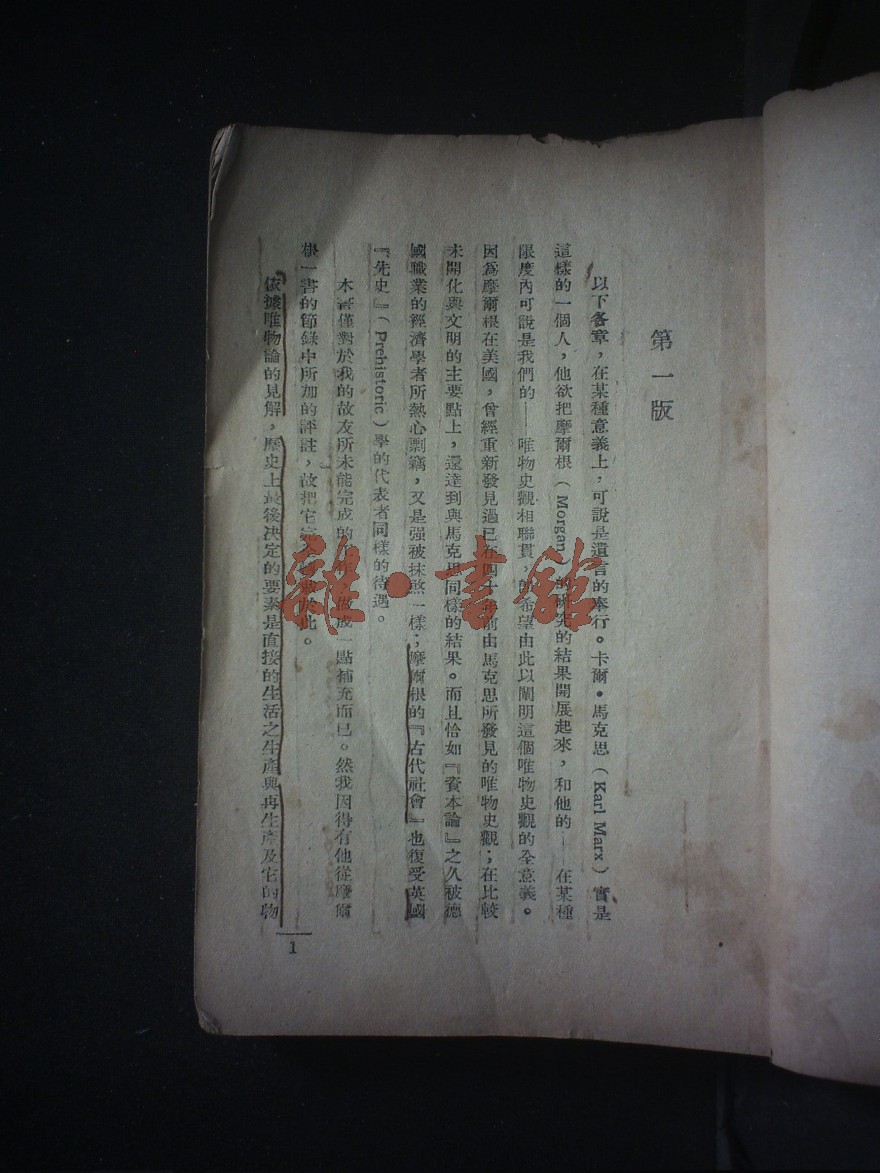 第一版
以下各章，在某種意義上，可說是遺言的奉行。卡爾·馬克思（Karl Marx）實是
這樣的一個人，他欲把摩爾根（Morgan）的研究的結果開展起來，和他的——在某種
限度內可說是我們的——唯物史觀相聯貫，而希望由此以闡明這個唯物史觀的全意義。
因爲摩爾根在美國，曾經重新發見過已在四十年前由馬克思所發見的唯物史觀；在比較
未開化與文明的主要點上，還達到與馬克思同樣的結果。而且恰如『資本論』之久被德
國職業的經濟學者所熱心剽竊，又是强被抹煞一樣；摩爾根的『古代社會』也復受英國
『先史』（Prehistoric）學的代表者同樣的待遇。
本書僅對於我的故友所未能完成的，做成一點補充而已。然我因得有他從摩爾
根一書的節錄中所加的評註，故把它於此。
依據唯物論的見解，歷史上最後決定的要素是直接的生活之生產與再生產及它的物
1
雜·書館